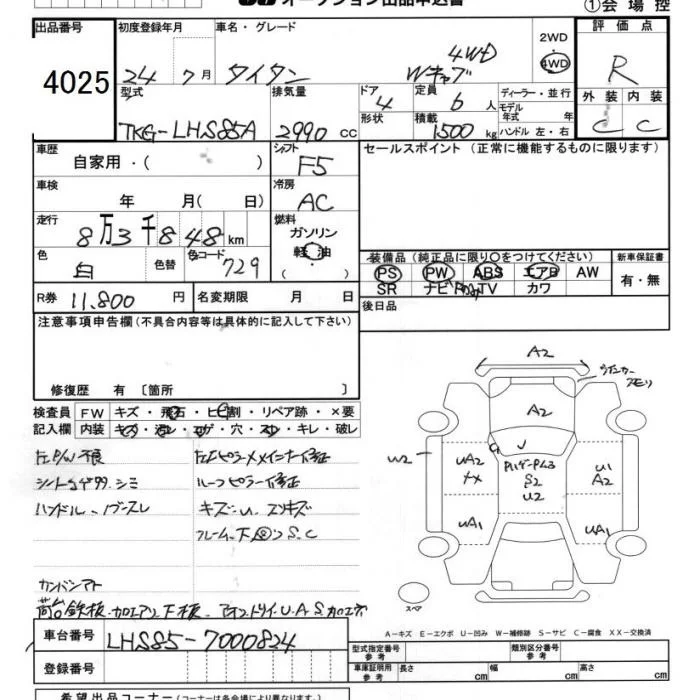 オークション出品申込書
①会場控
出品番号
4025
初度登録年月
24 7月
車名・グレード
タイタン
Wキャブ 4WD
2WD
4WD
評価点
R
型式
TKG-LHS85A
排気量
2990 cc
ドア
4
形状
定員
6 人
積載
1500 kg
ディーラー・並行
モデル年式 年
ハンドル 左・右
外装 内装
C C
車歴
自家用・( )
シフト
F5
セールスポイント(正常に機能するものに限ります)
車検
年 月( 日)
冷房
AC
走行
8万3千848km
燃料
ガソリン
軽油
( )
色
白
色替
色コード
729
装備品(純正品に限り〇をつけてください)
PS PW ABS エアB AW
SR ナビ TV カワ
新車保証書
有・無
R券 11,800 円
名変期限 月 日
後日品
注意事項申告欄(不具合内容等は具体的に記入して下さい)
修復歴 有〔箇所 〕
検査員 FW キズ・飛石・ヒビ割・リペア跡・×要
記入欄 内装 キズ・汚レ・コゲ・穴・スレ・キレ・破レ
シートコゲ穴.シミ
ルーフピラー修正
ハンドル.ノブスレ
キズ.U.スリキズ
A2
A2
W2
UA2
U1
A2
S2
U2
UA1
UA1
スペア
A-キズ E-エクボ U-凹み W-補修跡 S-サビ C-腐食 XX-交換済
車台番号 LHS85-7000824
登録番号
型式指定番号 参考
類別区分番号 参考
車庫証明用 参考 長さ cm 幅 cm 高さ cm
希望出品コーナー(コーナーは各会場により異なります)